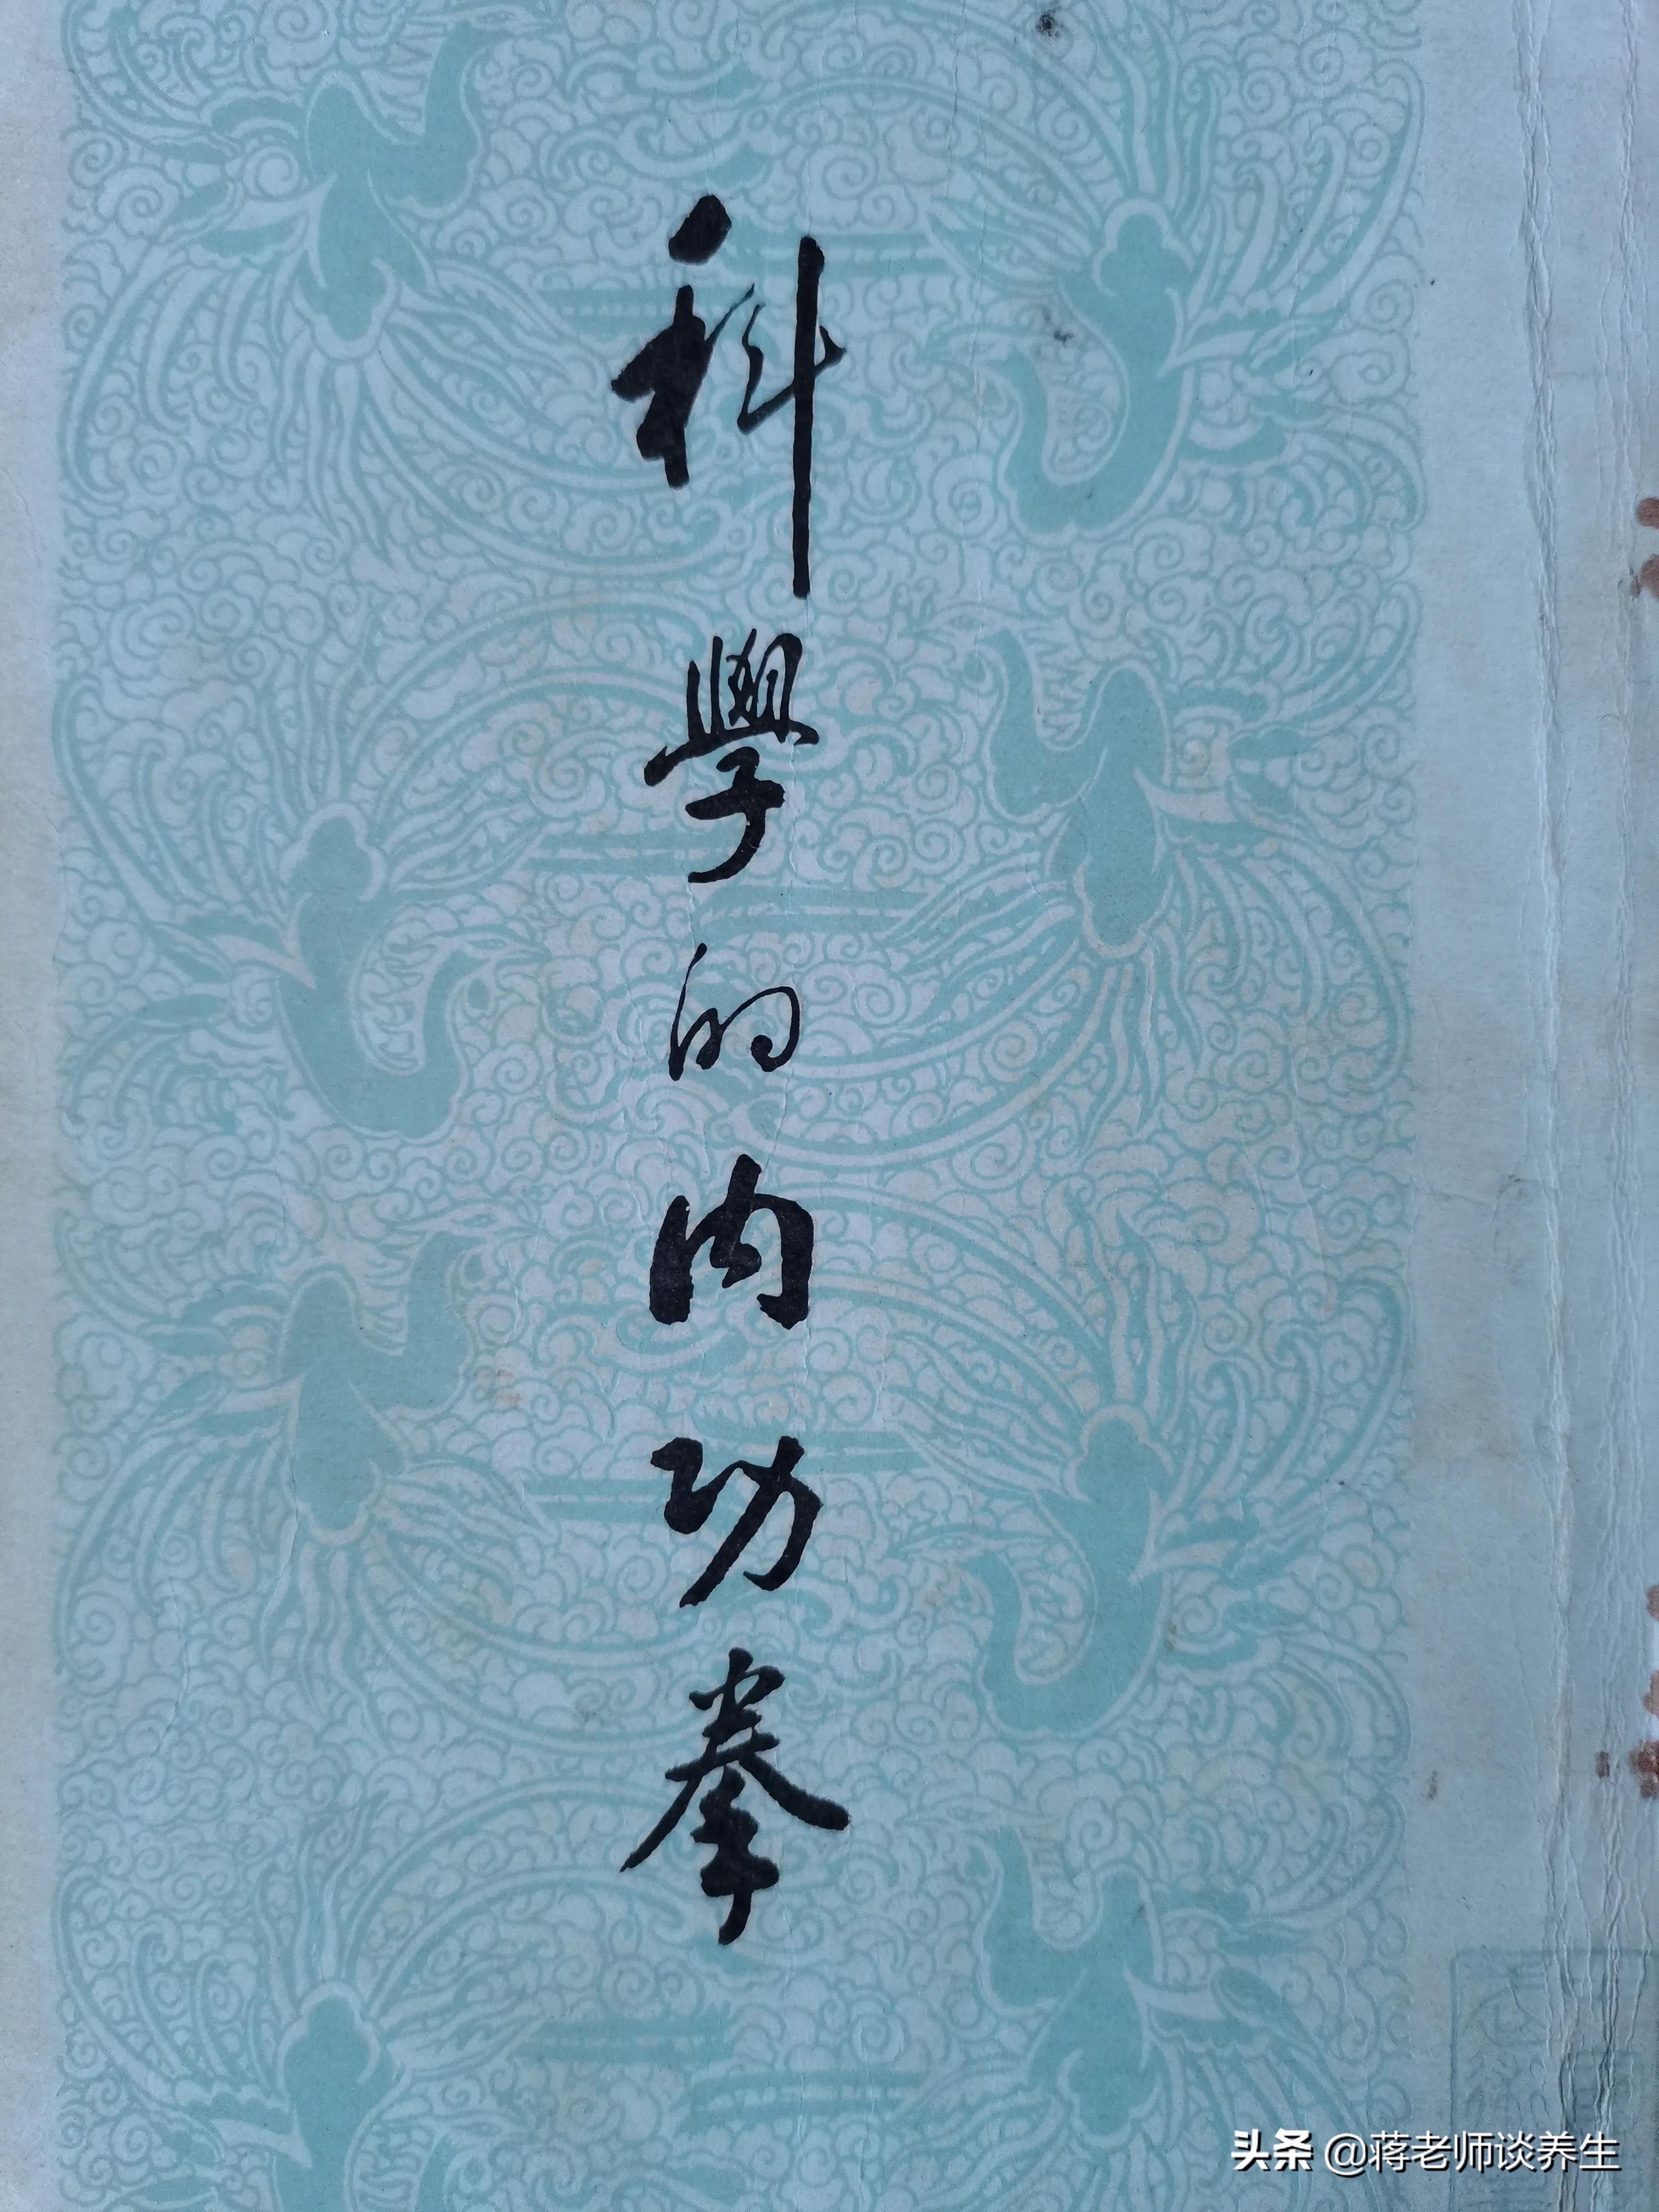 科學的内功拳
头条 @蒋老师谈养生